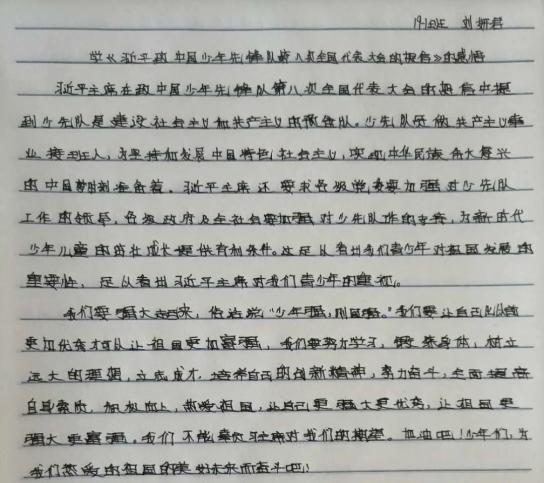 刘妍君
学《习近平致中国少年先锋队第八次全国代表大会的报信》的感悟
习近平主席在致中国少年先锋队第八次全国代表大会的报信中提
到少先队是建设社会主义和共产主义的预备队。少先队员做共产主义事
业接班人，为坚持和发展中国特色社会主义，实现中华民族伟大复兴
的中国梦时刻准备着。习近平主席还要求各级党委要加强对少先队
工作的领导，各级政府及全社会要加强对少先队工作的支持，为新时代
少年儿童的茁壮成长提供有利条件。这足以看出我们青少年对祖国发展的
重要性，足以看出习近平主席对我们青少年的重视。
我们要强大起来，俗话说“少年强，则国强。”我们要让自己
更加优秀才可以让祖国更加富强，我们要努力学习，锻炼身体，树立
远大的理想，立志成才，培养自己的创新精神，努力奋斗，全面提高
自身素质，加权向上，热爱祖国，让自己更强大更优秀，让祖国更
强大更富强。我们不能辜负习主席对我们的期望。加油吧！少年们，为
我们热爱的祖国的美好未来而奋斗吧！